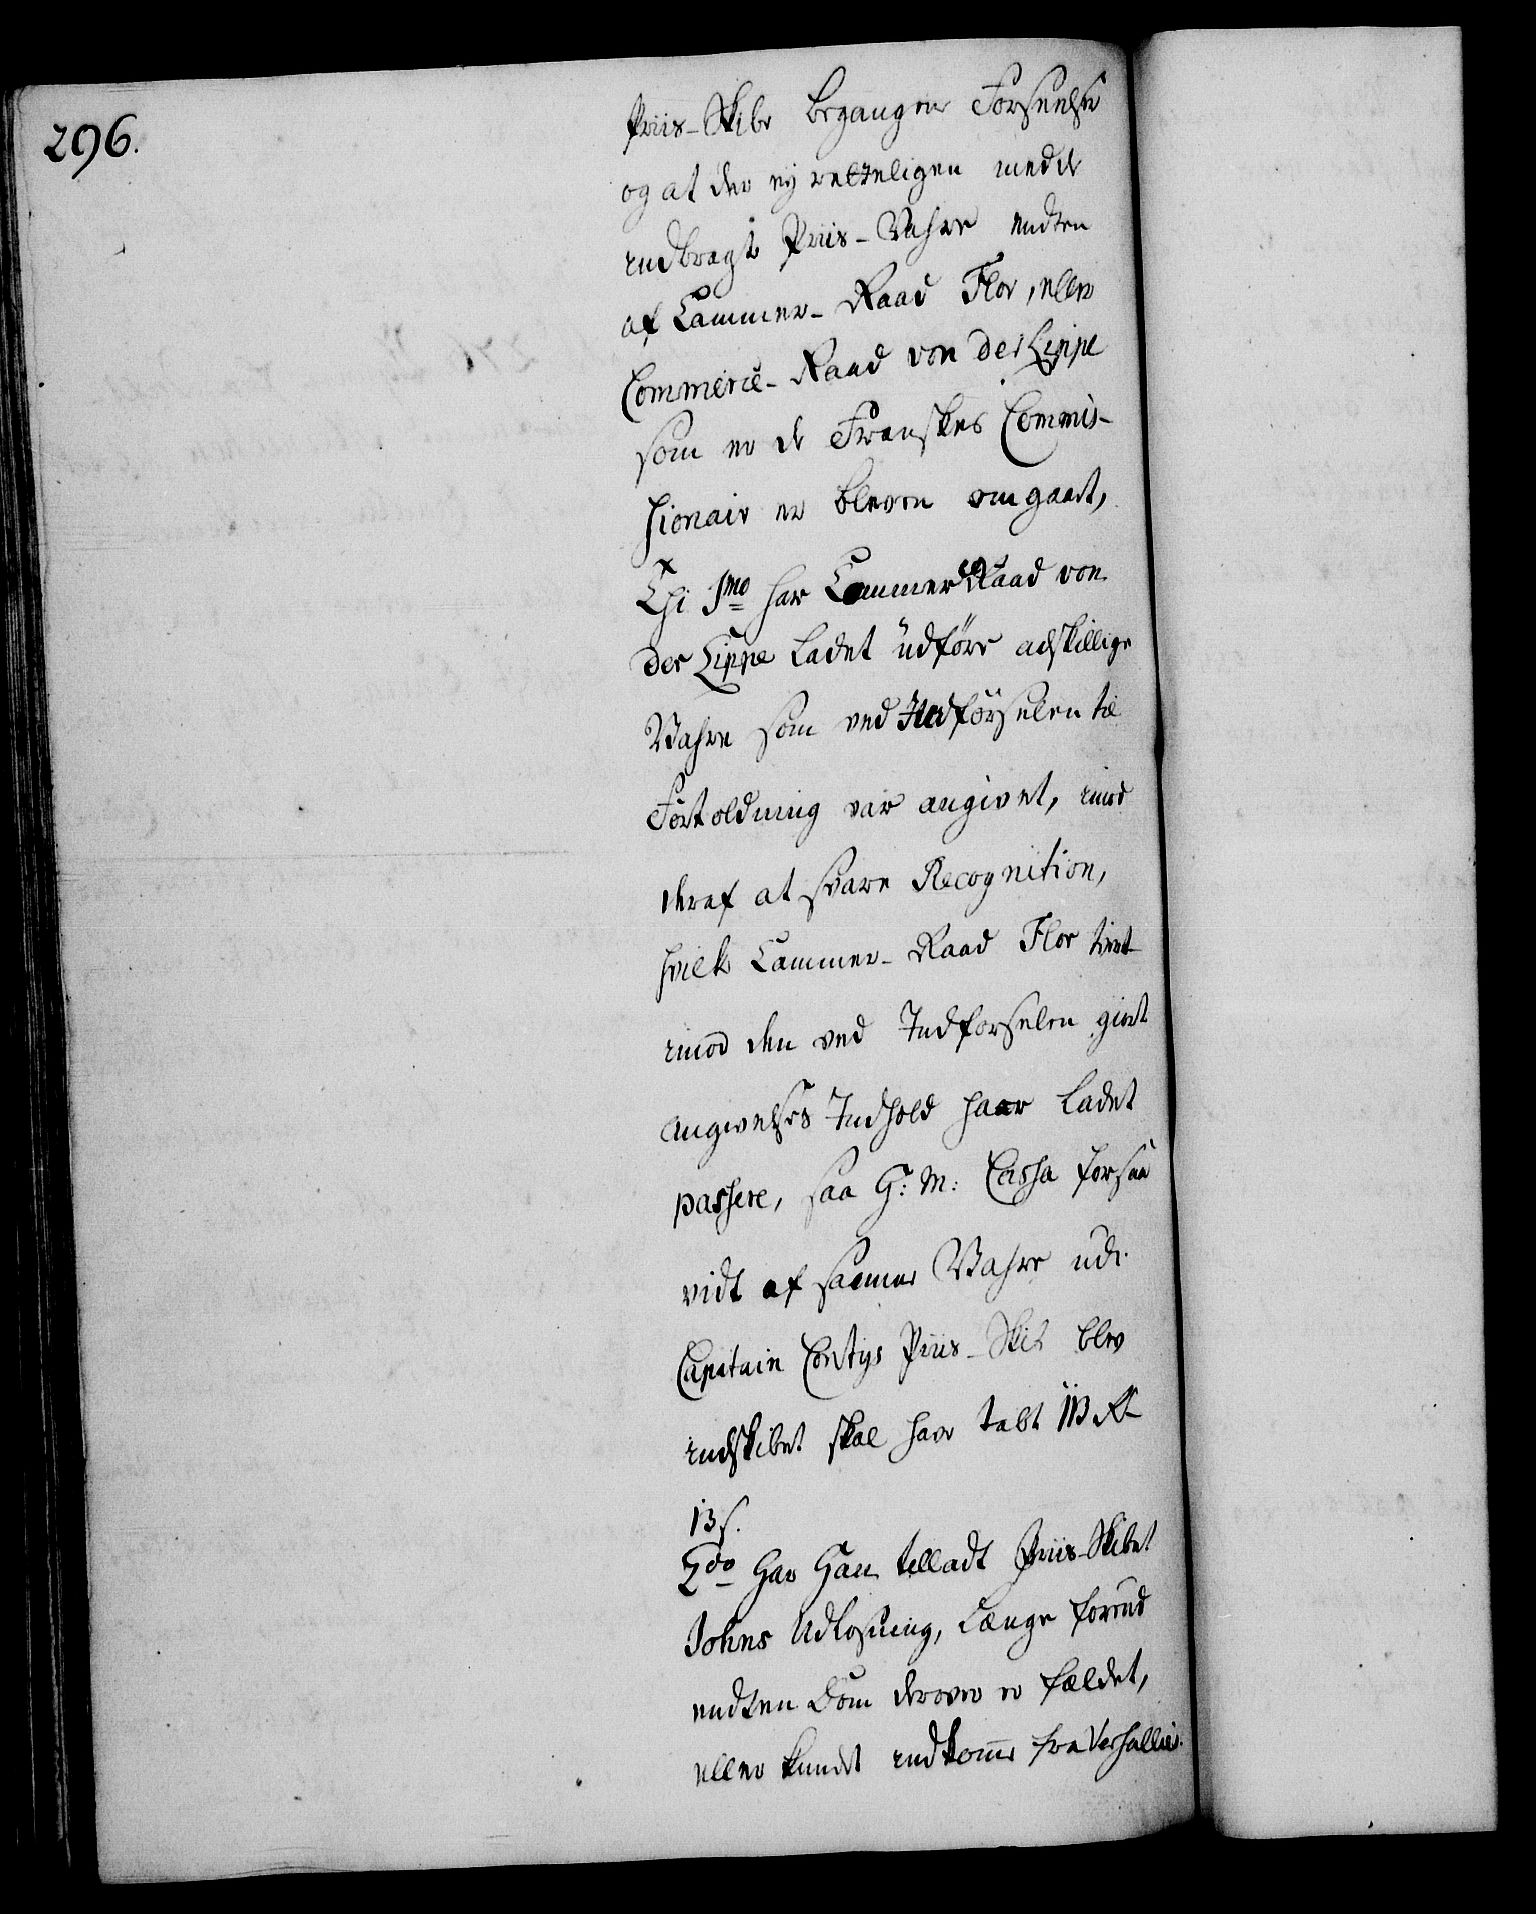 296.
Priis-Skibe begangen Forseelse
og at der ej retteligen med de
indbragte Priis-Vahre endten
af Cammer-Raad Flor, eller
Commerce-Raad von der Lippe
som er de Franskes Commis-
sionair er bleven omgaaet,
Thi 1mo har Cammer Raad von
der Lippe ladet udføre adskillige
Vahre som ved Indførselen til
Fortoldning var angivet, imod
deraf at svare Recognition,
hvilke Cammer-Raad Flor tvert
imod den ved Indforselen giort
angivelses Indhold haar ladet
passere, saa H: M: Cassa forsaa
vidt af samme Vahre udi
Capitain Priis-Skib blev
indskibet skal have tabt 113 Rd
13 s.
2do Har Han tilladt Priis-Skibet
Johns Udlosning, længe forend
endten Dom derover er fældet,
eller kundet indkomme fra Versallies.